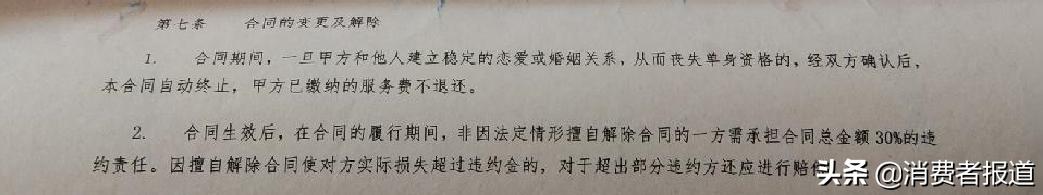 第七条 合同的变更及解除
1. 合同期间，一旦甲方和他人建立稳定的恋爱或婚姻关系，从而丧失单身资格的，经双方确认后，
本合同自动终止，甲方已缴纳的服务费不退还。
2. 合同生效后，在合同的履行期间，非因法定情形擅自解除合同的一方需承担合同总金额30%的违
约责任。因擅自解除合同使对方实际损失超过违约金的，对于超出部分违约方还应进行赔
头条 @消费者报道